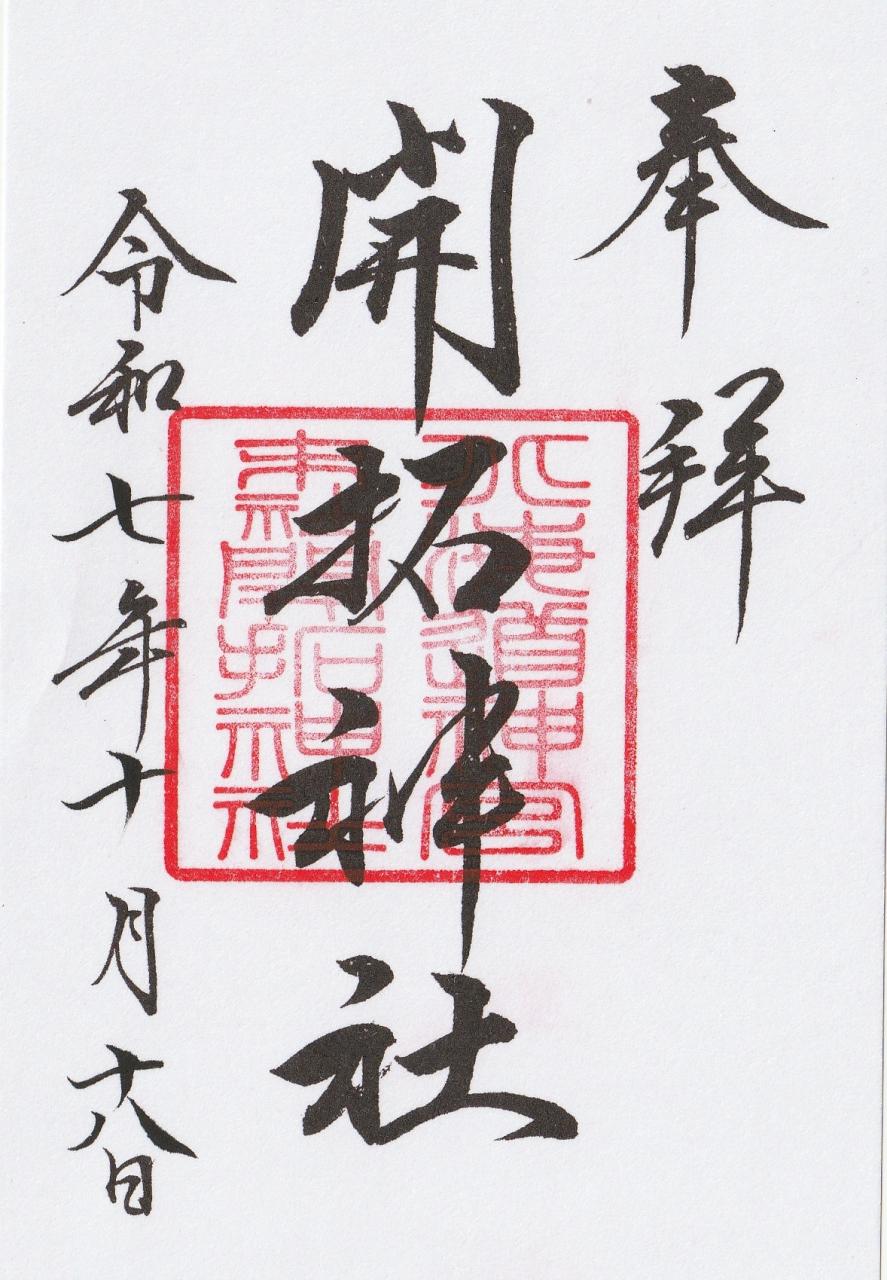 奉拝
開拓神社
北海道神宮
末社開拓神社
令和七年十月十八日